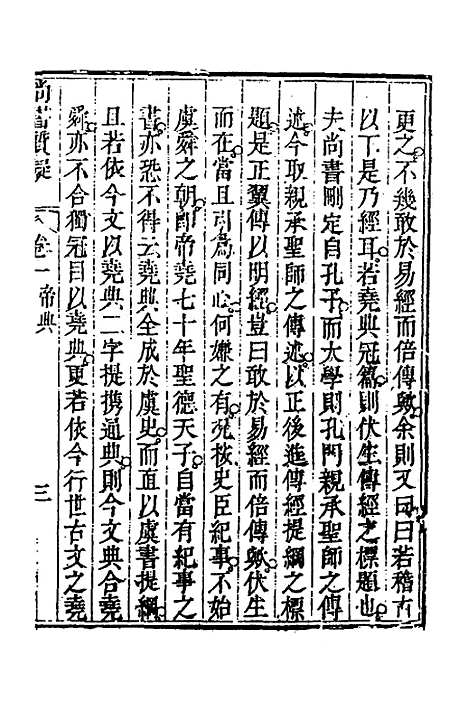 更之不幾敢於易經而倍傳歟余則又曰曰若稽古
以下是乃經耳若堯典冠篇則伏生傳經之標題也
夫尚書刪定自孔子而大學則孔門親承聖師之傳
述今取親承聖師之傳述以正後進傳經提綱之標
題是正翼傳以明經豈曰敢於易經而倍傳歟伏生
而在當且引爲同心何嫌之有況核史臣紀事不始
虞舜之朝卽帝堯七十年聖德天子自當有紀事之
書亦恐不得云堯典全成於虞史而直以虞書提綱
且若依今文以堯典二字提攜通典則今文典合堯
舜亦不合獨冠目以堯典更若依今行世古文之堯
尚書質疑 卷一 帝典 三